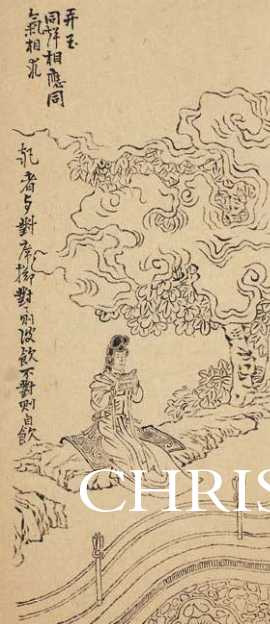 弄玉
同聲相應同
氣相求
執者与對席擲對則彼飲不對則自飲
CHRIS